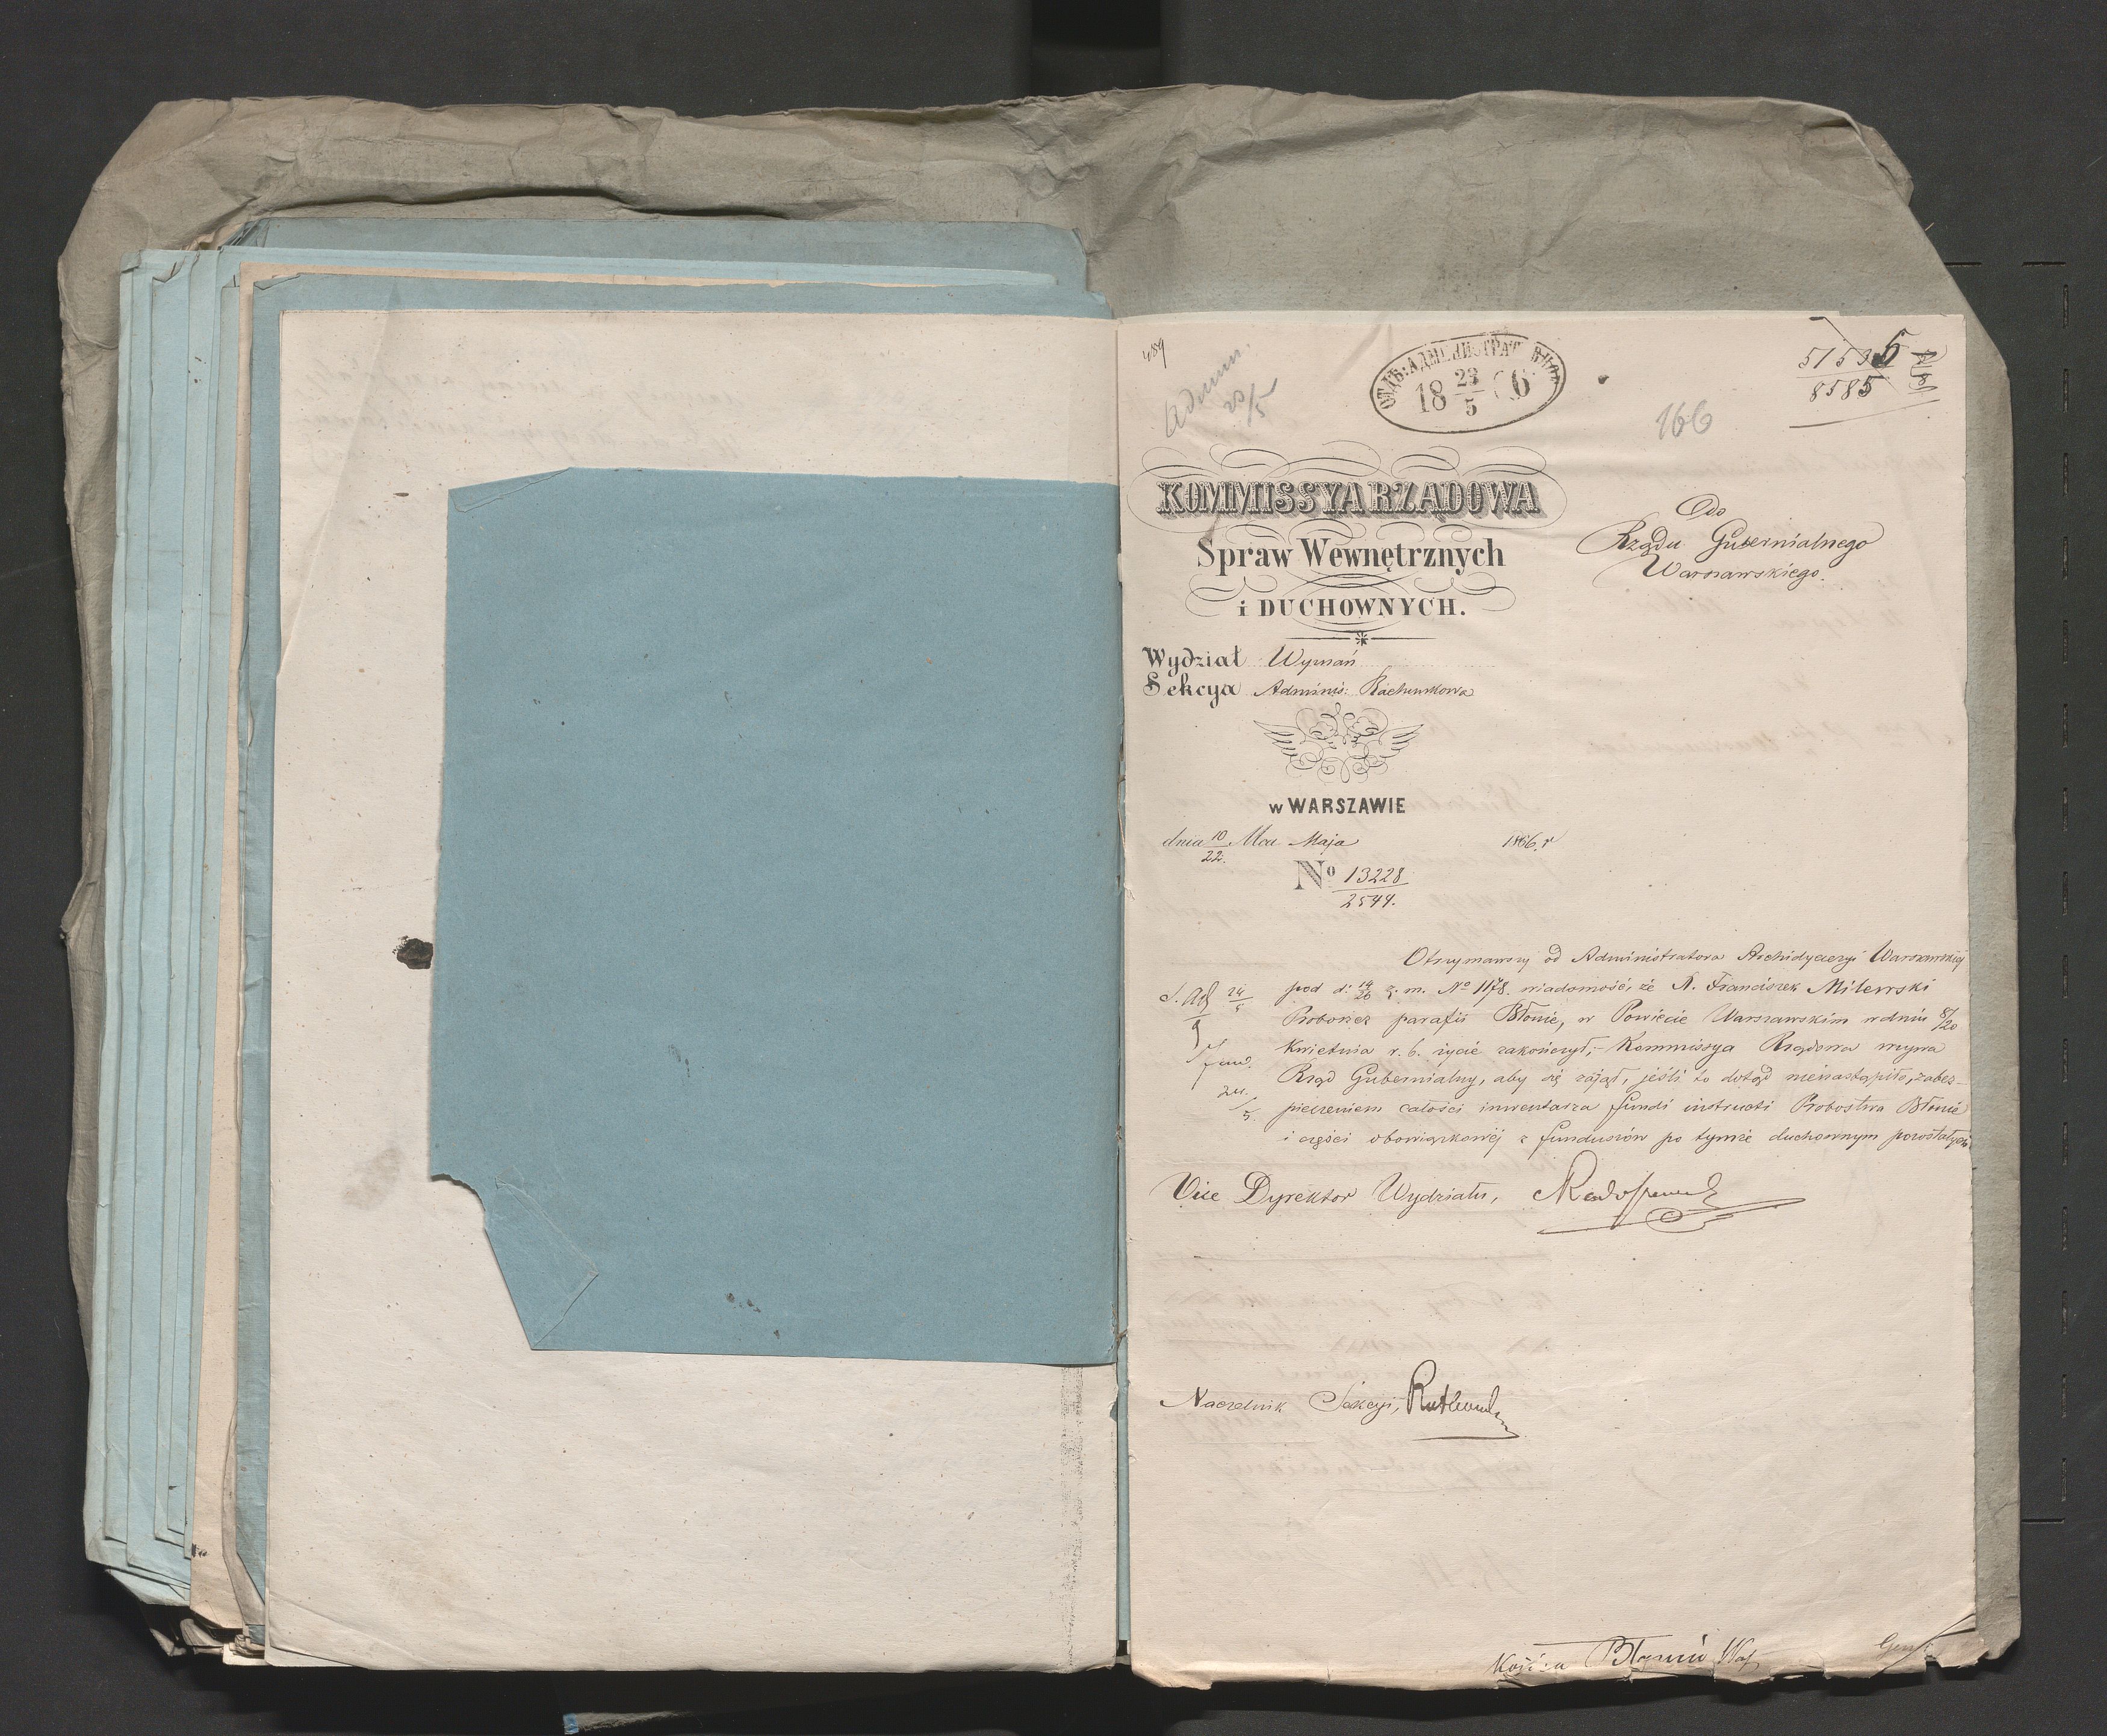 489
Admin.
23/5
ОТДѢ: АДМИНИСТРАТИВНОЕ
18 23/5 66
166
51535
8585
KOMMISSYA RZĄDOWA
Spraw Wewnętrznych
i DUCHOWNYCH.
Wydział Wyznań
Sekcya Adminis: Rachunkowa
w WARSZAWIE
dnia 10/22 Mca Maja 1866 r
No 13228/2544.
Do
Rządu Gubernialnego
Warszawskiego.
Otrzymawszy od Administratora Archidyecezyi Warszawskiej
pod d: 14/26 z. m. No 1178. wiadomość, że X. Franciszek Milewski
Proboszcz parafii Błonie, w Powiecie Warszawskim w dniu 8/20
Kwietnia r. b. życie zakończył; - Kommissya Rządowa wzywa
Rząd Gubernialny, aby się zajął, jeśli to dotąd nienastąpiło, zabez-
pieczeniem całości inwentarza fundi instructi Probostwa Błonie
i części obowiązkowéj z funduszów po tymże duchownym pozostałych
24/5
24/5.
Vice Dyrektor Wydziału,
Naczelnik Sekcyi,